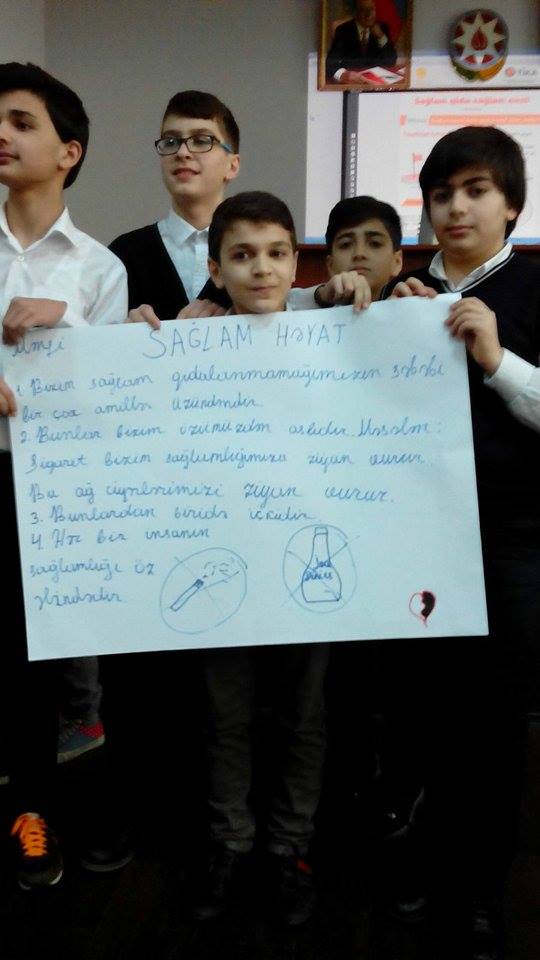 TİKA
Sağlam qida-sağlam nəsil
SAĞLAM HƏYAT
1. Bizim sağlam qidalanmamağımızın səbəbi
bir çox amillər üzündəndir
2. Bunlar bizim özümüzdən asılıdır. Məsələn:
Siqaret bizim sağlamlığımıza ziyan vurur.
Bu ağ ciyərlərimizi ziyan vurur.
3. Bunlardan biridə içkidir
4. Hər bir insanın
sağlamlığı öz
əlindədir